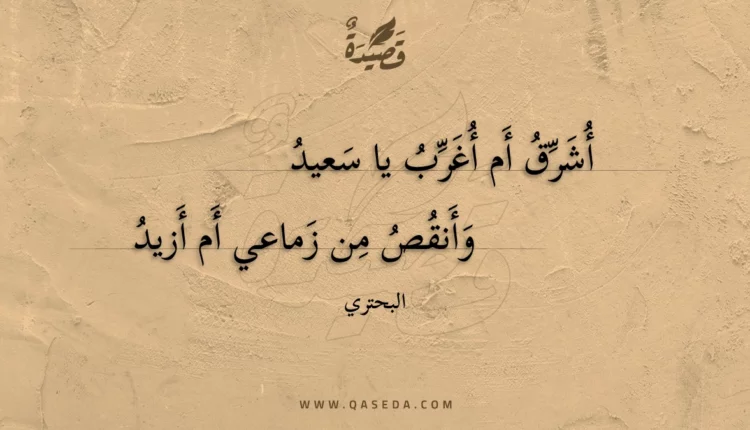 قَصِيدَةٌ
أُشَرِّقُ أَم أُغَرِّبُ يا سَعيدُ
وَأَنقُصُ مِن زَماعي أَم أَزيدُ
البحتري
WWW.QASEDA.COM